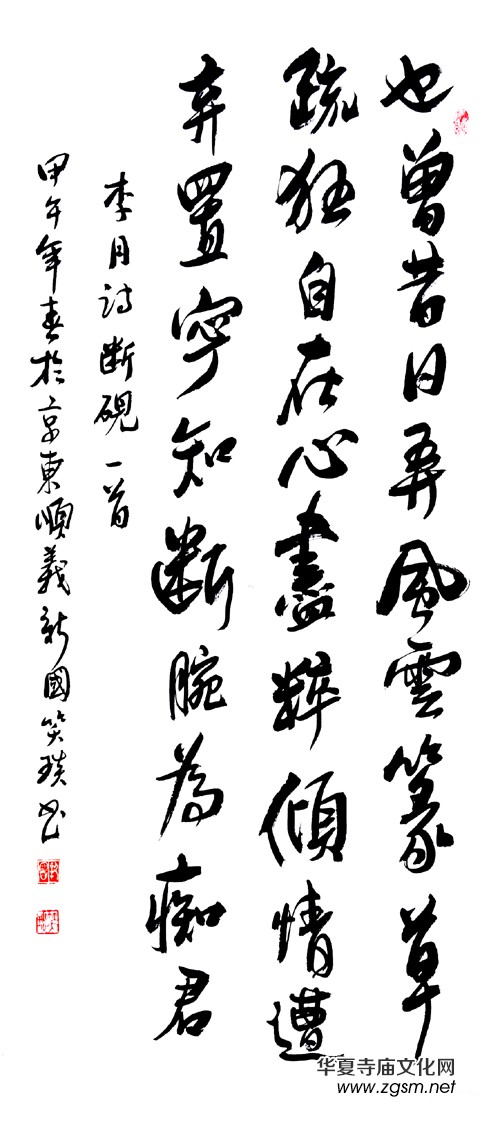 也曾昔日弄風雲篆草
疏狂自在心盡粹傾情遭
弃置寧知断腕為痴君
李月诗断硯一首
甲午年春於京東順義新國笑琰书
华夏寺庙文化网
www.zgsm.net